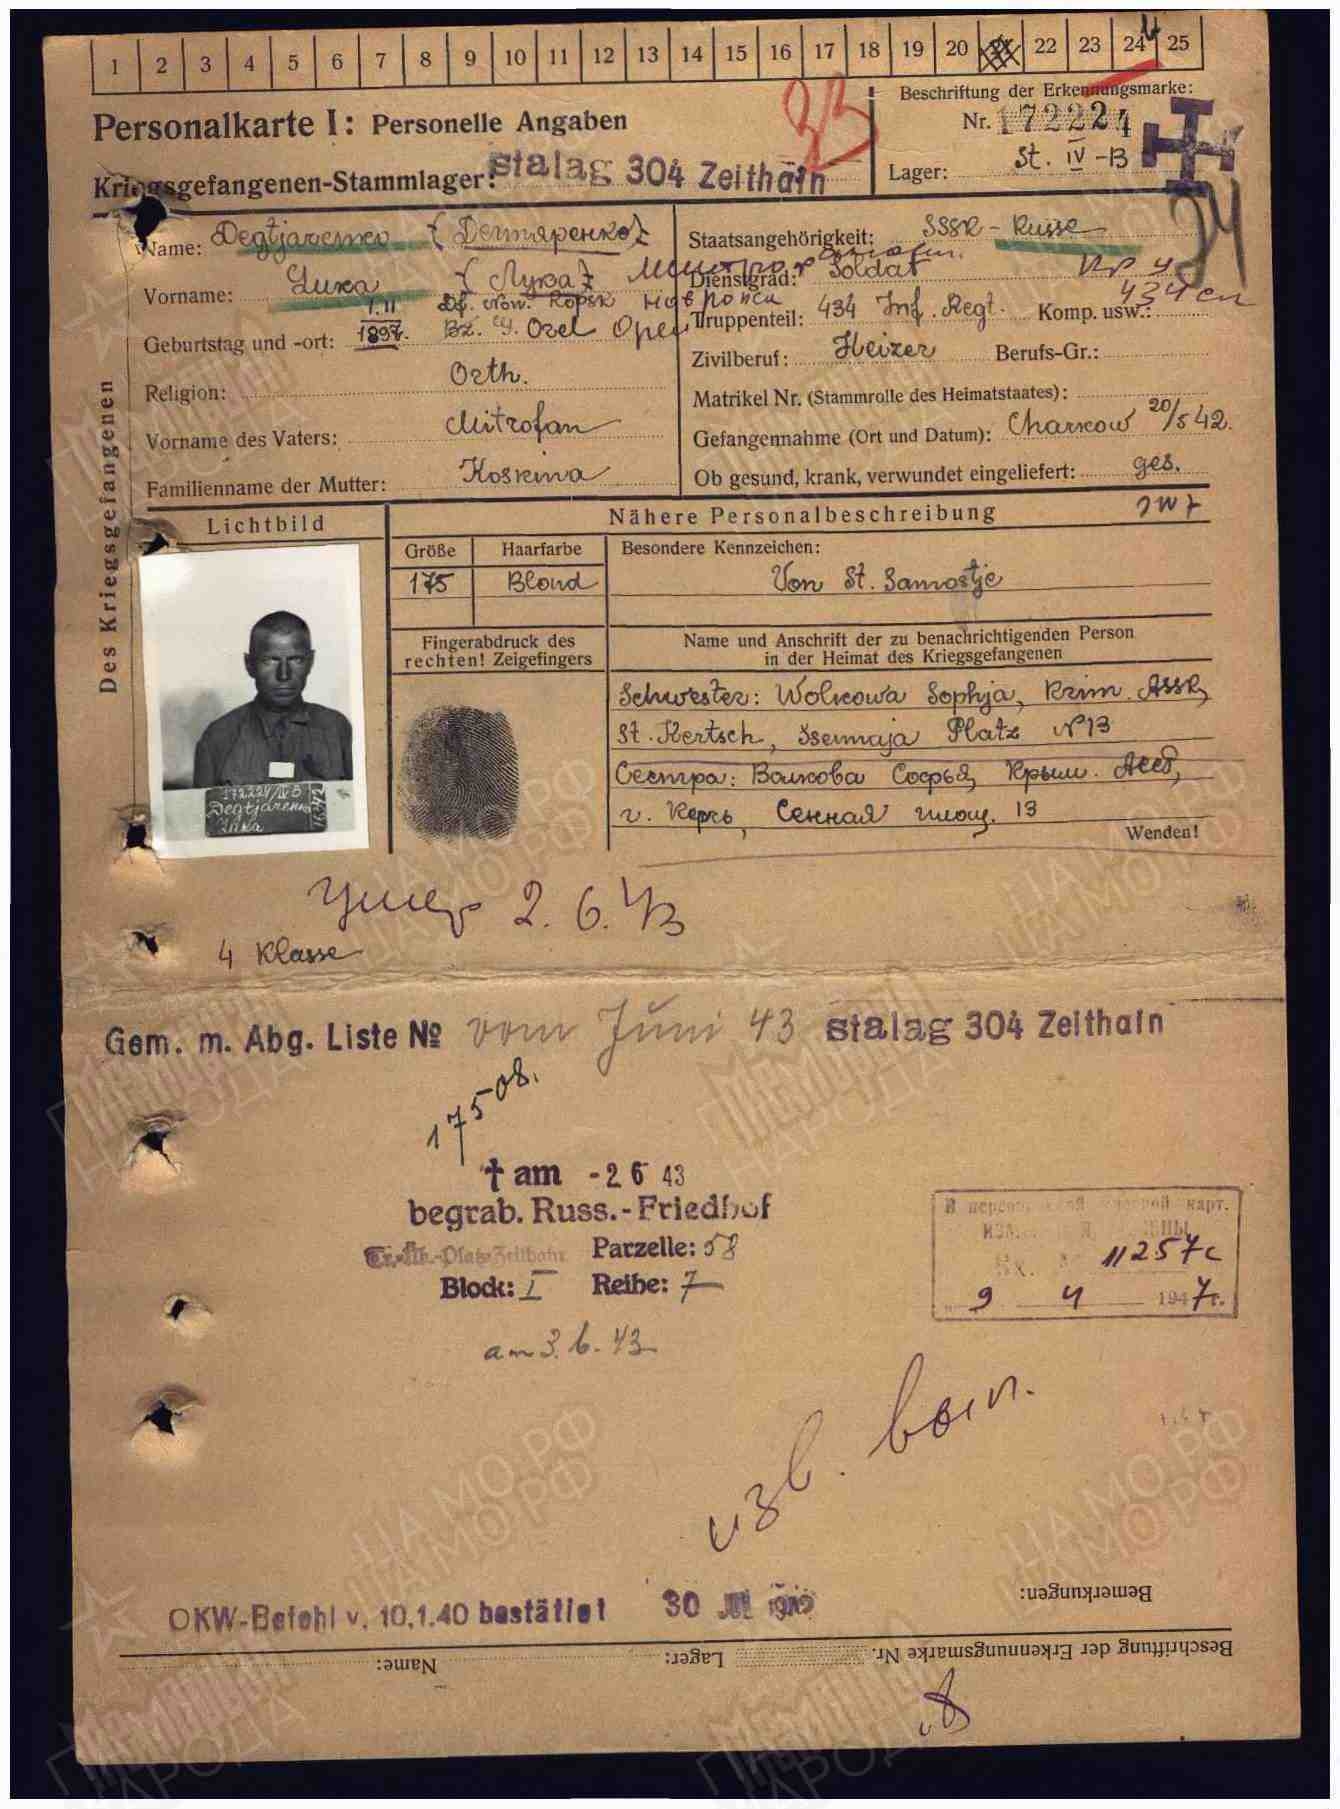 1 2 3 4 5 6 7 8 9 10 11 12 13 14 15 16 17 18 19 20 22 23 24 25
Personalkarte I: Personelle Angaben
Beschriftung der Erkennungsmarke:
Nr. 172224
Kriegsgefangenen-Stammlager: Stalag 304 Zeithain
Lager: St. IV-B
24
Des Kriegsgefangenen
Name: Degtjarenko (Дегтяренко)
Vorname: Luka (Лука) Митрофан
1.II
Geburtstag und -ort: 1897. Bz. Orel
Religion: Orth.
Vorname des Vaters: Mitrofan
Familienname der Mutter: Koskina
Staatsangehörigkeit: SSSR - Russe
Dienstgrad: Soldat
Truppenteil: 434 Inf. Regt. Komp. usw.: 434 сп
Zivilberuf: Heizer Berufs-Gr.:
Matrikel Nr. (Stammrolle des Heimatstaates):
Gefangennahme (Ort und Datum): Charkow 20/5 42.
Ob gesund, krank, verwundet eingeliefert: ges.
Lichtbild
Nähere Personalbeschreibung
Größe Haarfarbe Besondere Kennzeichen:
175 Blond Von St. Samostje
Fingerabdruck des
rechten! Zeigefingers
Name und Anschrift der zu benachrichtigenden Person
in der Heimat des Kriegsgefangenen
Schwester: Wolkowa Sophja, Krim. ASSR,
St. Kertsch, Ssennaja Platz N 13
Сестра: Волкова Софья, Крым. АССР,
г. Керчь, Сенная площ. 13
Wenden!
172224/IV B
Degtjarenko
Luka
Умер 2.6.43
4 Klasse
Gem. m. Abg. Liste № vom Juni 43 Stalag 304 Zeithain
17508.
† am -2 6 43
begrab. Russ.-Friedhof
Tr.-Üb.-Platz Zeithain Parzelle: 58
Block: I Reihe: 7
am 3.6.43
карт.
11257с
9 4 1947г.
изв. вып.
OKW-Befehl v. 10.1.40 bestätigt 30
Bemerkungen:
Beschriftung der Erkennungsmarke Nr. Lager: Name:
ПАМЯТЬ НАРОДА
ЦА МО РФ